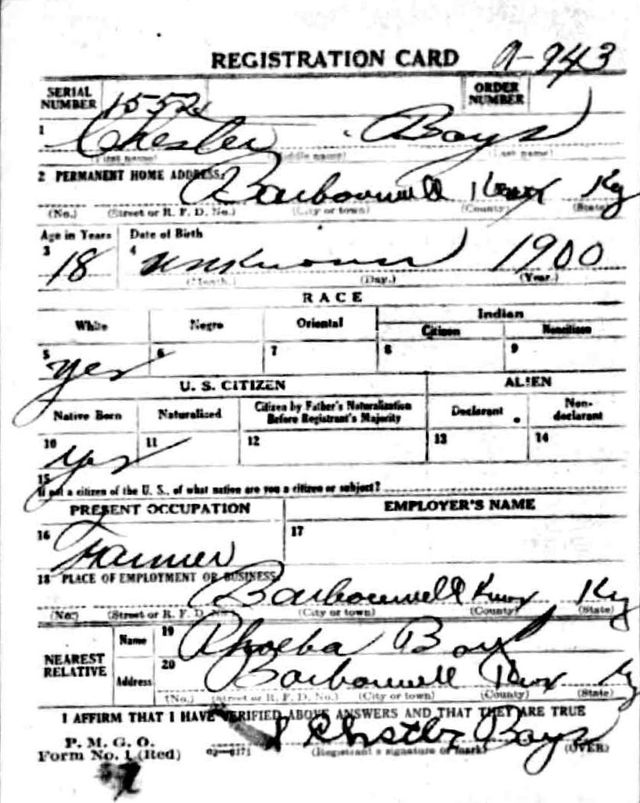 REGISTRATION CARD A-943
SERIAL NUMBER 1552 ORDER NUMBER
1 Chester Boys
(First name) (Middle name) (Last name)
2 PERMANENT HOME ADDRESS: Barbourvell Knox Ky
(No.) (Street or R. F. D. No.) (City or town) (County) (State)
Age in Years Date of Birth
3 18 4 unknown 1900
(Month.) (Day.) (Year.)
RACE
White Negro Oriental Indian
Citizen Noncitizen
5 yes 6 7 8 9
U. S. CITIZEN ALIEN
Native Born Naturalized Citizen by Father's Naturalization Before Registrant's Majority Declarant Non-declarant
10 yes 11 12 13 14
15 If not a citizen of the U. S., of what nation are you a citizen or subject?
PRESENT OCCUPATION EMPLOYER'S NAME
16 Farmer 17
18 PLACE OF EMPLOYMENT OR BUSINESS: Barbourvell Knox Ky
(No.) (Street or R. F. D. No.) (City or town) (County) (State)
NEAREST RELATIVE Name 19 Phoeba Boys
Address 20 Barbourvell Knox Ky
(No.) (Street or R. F. D. No.) (City or town) (County) (State)
I AFFIRM THAT I HAVE VERIFIED ABOVE ANSWERS AND THAT THEY ARE TRUE
P. M. G. O.
Form No. 1 (Red) Chester Boys
(Registrant's signature or mark) (OVER)